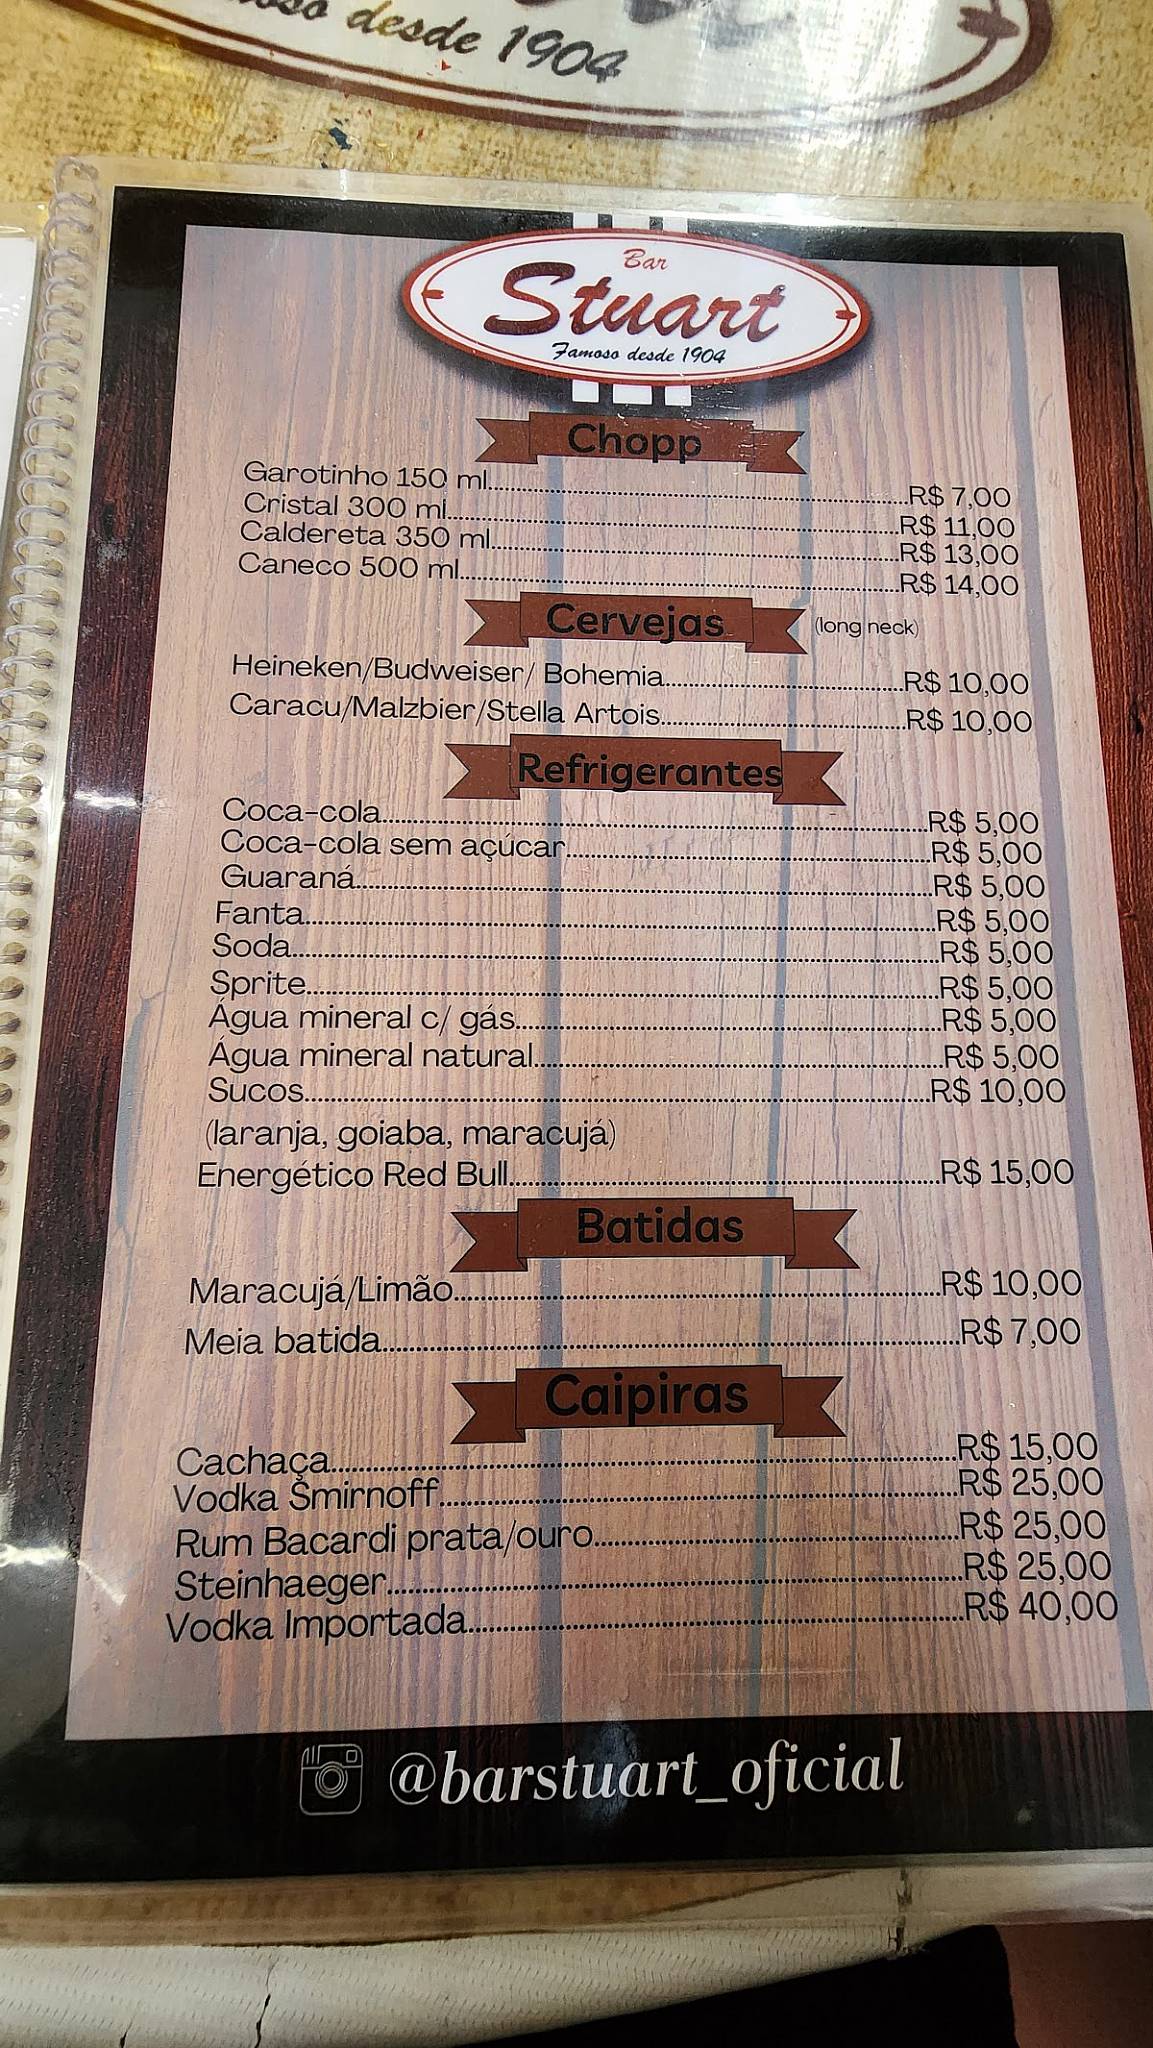 desde 1904
Bar
Stuart
Famoso desde 1904
Chopp
Garotinho 150 ml....R$ 7,00
Cristal 300 ml....R$ 11,00
Caldereta 350 ml....R$ 13,00
Caneco 500 ml....R$ 14,00
Cervejas (long neck)
Heineken/Budweiser/ Bohemia....R$ 10,00
Caracu/Malzbier/Stella Artois....R$ 10,00
Refrigerantes
Coca-cola....R$ 5,00
Coca-cola sem açúcar....R$ 5,00
Guaraná....R$ 5,00
Fanta....R$ 5,00
Soda....R$ 5,00
Sprite....R$ 5,00
Água mineral c/ gás....R$ 5,00
Água mineral natural....R$ 5,00
Sucos....R$ 10,00
(laranja, goiaba, maracujá)
Energético Red Bull....R$ 15,00
Batidas
Maracujá/Limão....R$ 10,00
Meia batida....R$ 7,00
Caipiras
Cachaça....R$ 15,00
Vodka Smirnoff....R$ 25,00
Rum Bacardi prata/ouro....R$ 25,00
Steinhaeger....R$ 25,00
Vodka Importada....R$ 40,00
@barstuart_oficial